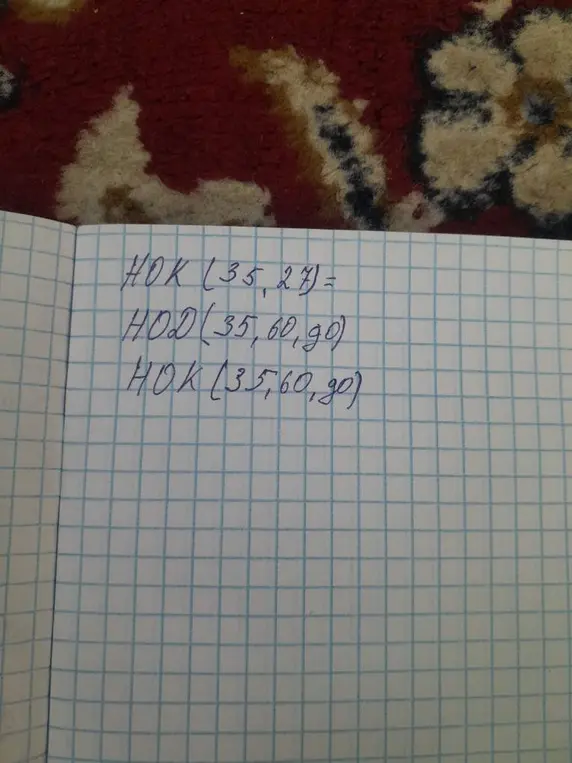 НОК (35, 27)=
НОД (35, 60, 90)
НОК (35, 60, 90)